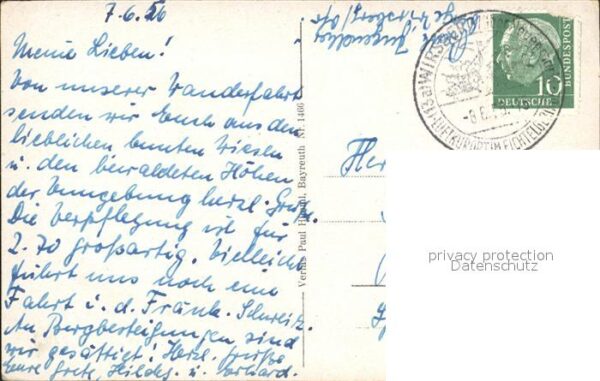 7.6.56
Meine Lieben!
Von unserer Wanderfahrt
senden wir Euch aus den
lieblichen bunten Wiesen
u. den bewaldeten Höhen
der Umgebung herzl. Grüße.
Die Verpflegung ist für
2.70 großartig. Vielleicht
führt uns noch eine
Fahrt i. d. Fränk. Schweiz.
An Bergbesteigungen sind
wir gesättigt! Herzl. Grüße
Eure Grete, Hildeg. u. Gerhard.
Verlag Paul Bayreuth Nr. 1466
WIRSBERG
LUFTKURORT IM FICHTELGEB.
10
DEUTSCHE
BUNDESPOST
privacy protection
Datenschutz